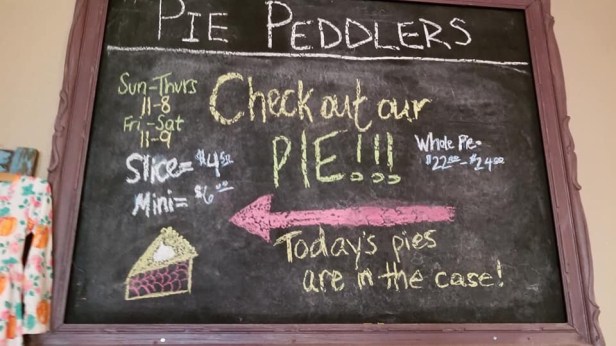 PIE PEDDLERS
Sun-Thurs
11-8
Fri-Sat
11-9
Check out our
PIE!!!
Slice= $4.50
Mini= $6.00
Whole Pie-
$22.00-$24.00
Today's pies
are in the case!